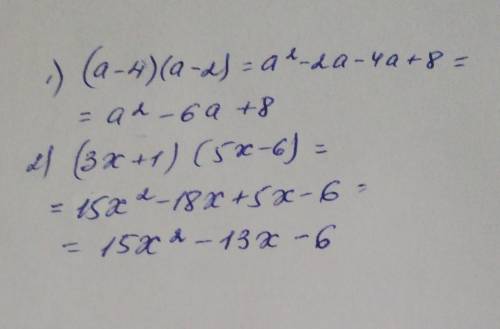 1) (a-4)(a-2) = a²-2a-4a+8 =
= a² - 6a + 8
2) (3x+1) (5x-6) =
= 15x² - 18x + 5x - 6 =
= 15x² - 13x - 6